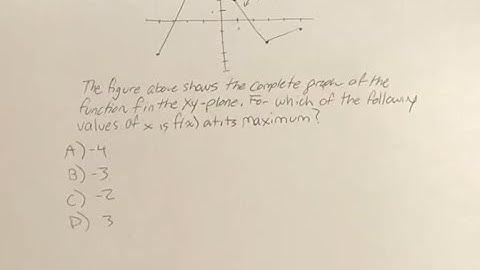 The figure above shows the complete graph of the
function f in the xy-plane. For which of the following
values of x is f(x) at its maximum?
A) -4
B) -3
C) -2
D) 3